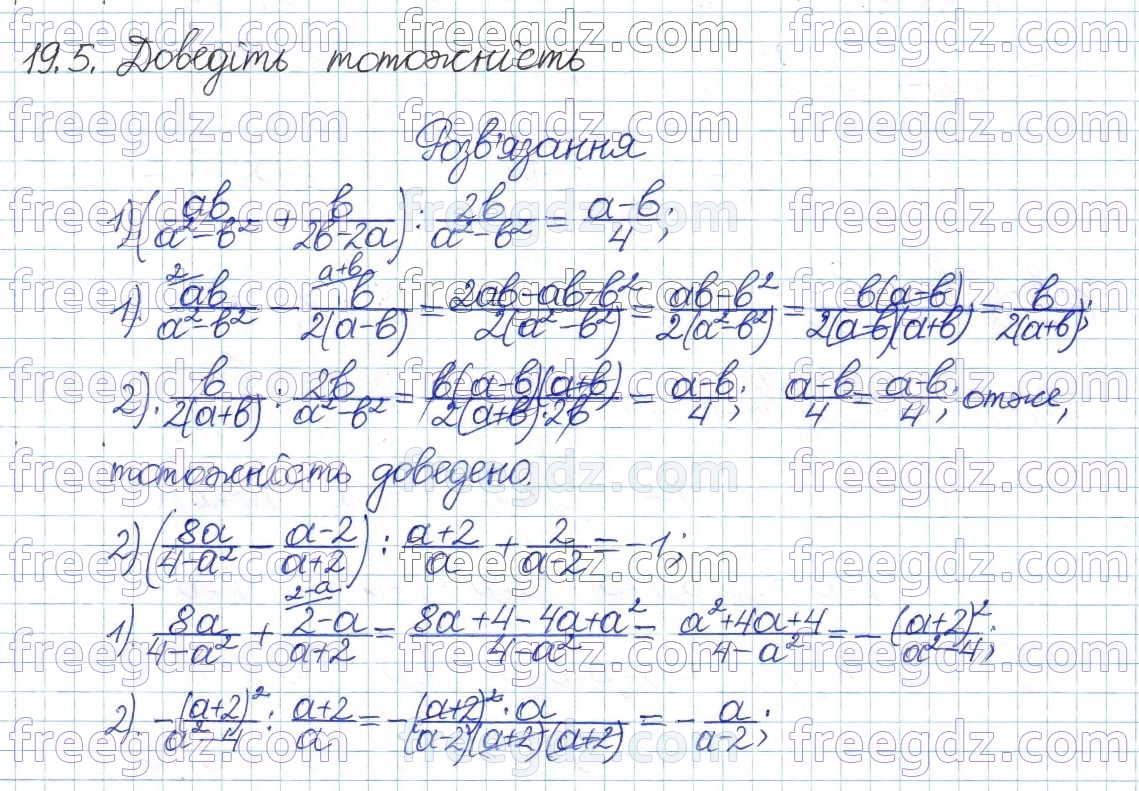 19.5. Доведіть тотожність
Розв'язання
1) (ab/(a²-b²) + b/(2b-2a)) : 2b/(a²-b²) = (a-b)/4;
1). ab/(a²-b²) (2) - b/(2(a-b)) (a+b) = (2ab-ab-b²)/(2(a²-b²)) = (ab-b²)/(2(a²-b²)) = b(a-b)/(2(a-b)(a+b)) = b/(2(a+b));
2). b/(2(a+b)) : 2b/(a²-b²) = b(a-b)(a+b)/(2(a+b)·2b) = (a-b)/4; (a-b)/4 = (a-b)/4; отже,
тотожність доведено.
2) (8a/(4-a²) - (a-2)/(a+2)) : (a+2)/a + 2/(a-2) = -1;
1). 8a/(4-a²) + (2-a)/(a+2) (2-a) = (8a+4-4a+a²)/(4-a²) = (a²+4a+4)/(4-a²) = -(a+2)²/(a²-4);
2). -(a+2)²/(a²-4) : (a+2)/a = -(a+2)²·a/((a-2)(a+2)(a+2)) = -a/(a-2);
freegdz.com